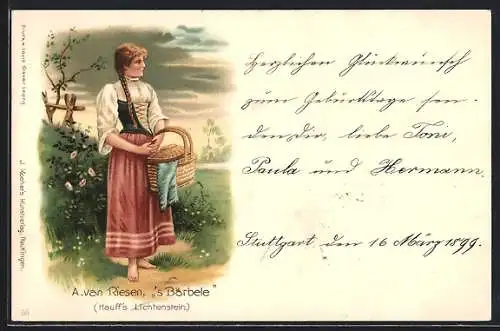 Herzlichen Glückwünsch
zum Geburtstage sen-
den Dir, liebe Toni,
Paula und Hermann.
Stuttgart, den 16 März 1899.
A. van Riesen, „'s Bärbele"
(Hauff's Lichtenstein)
J. Kocher's Kunstverlag, Reutlingen.